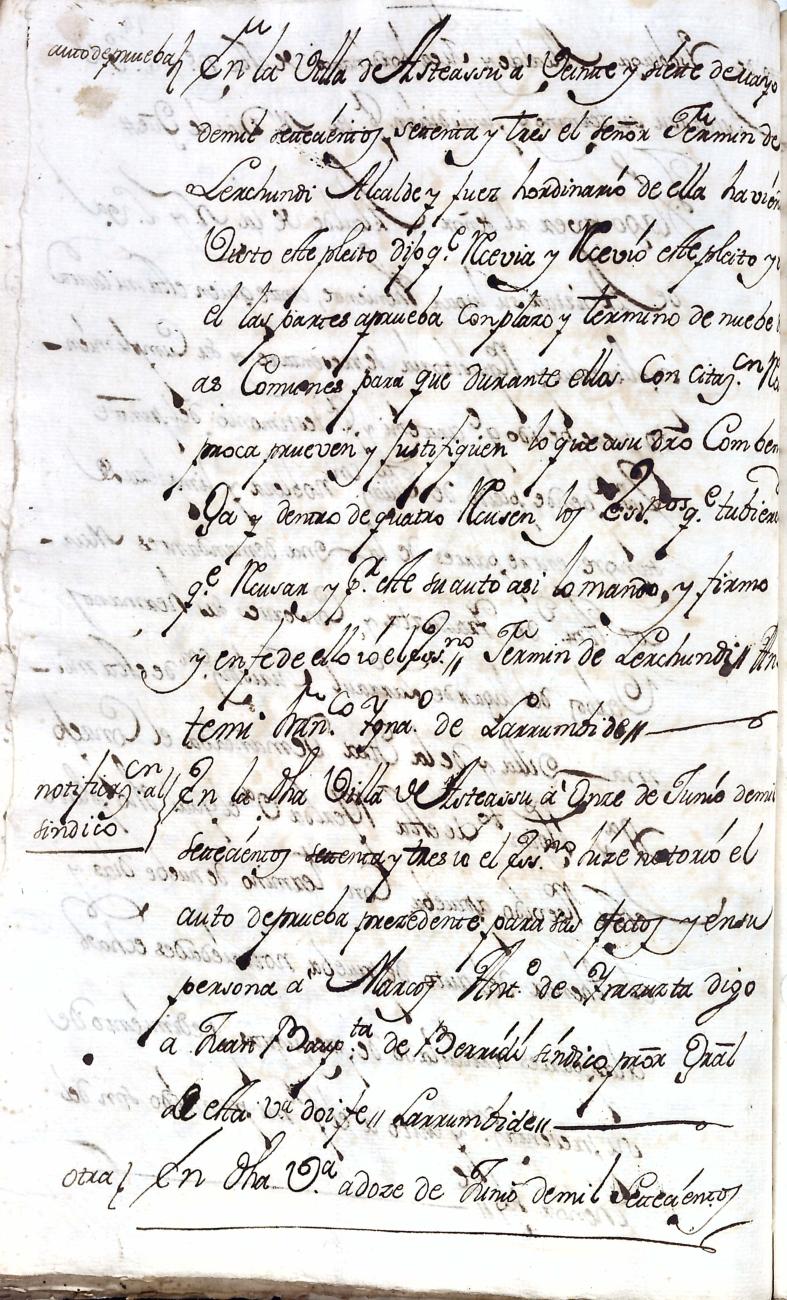 auto de prueba} En la Villa de Asteassu à Veinte y siete de mayo
demil setecientos setenta y tres el señor Fermin de
Lerchundi Alcalde y juez hordinario de ella havien
Visto este pleito dijo q.e Rcevia y Rcevió este pleito y
el las partes aprueba con plazo y termino de nuebe
as Comunes para que durante ellos Con citaz.on Rci
proca prueven y justifiquen lo que asu dro Comben
ga y dentro de quatro Rcusen los ess.nos q.e tubieren
q.e Rcusar y p.r este su auto asi lo mandò, y firmo
y en fe de ello io el Ess.no // Fermin de Lerchundi // An
temi Fran.co Ygna.o de Larrumbide //
notificaz.on al
sindico
En la dha Villa de Asteassu à Onze de Junio demil
setecientos setenta y tres io el Ess.no hize notorio el
auto de prueba prezedente para sus efectos y en su
persona à Marcos Ant.o de Yrazuzta digo
a Juan Baup.ta de Berridi síndico prõr Grãl
de esta v.a doi fe // Larrumbide //
otra} En dha V.a adoze de Junio demil Setecientos